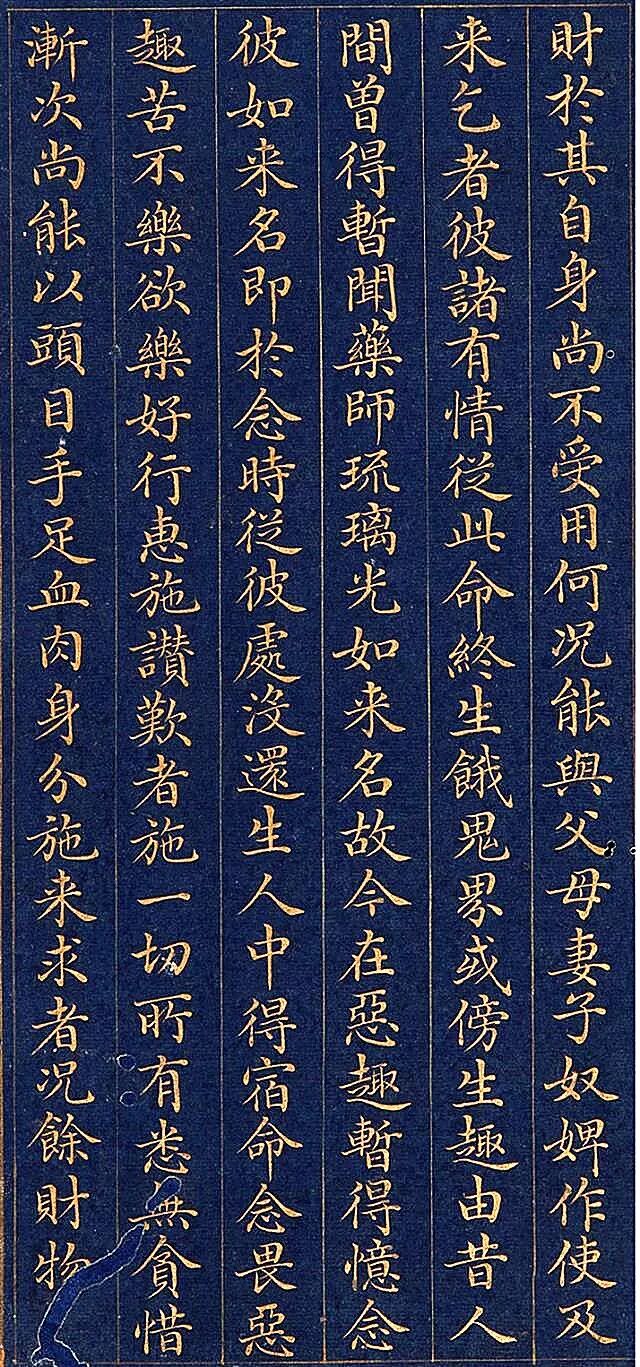 財於其自身尚不受用何况能與父母妻子奴婢作使及
来乞者彼諸有情従此命終生餓鬼界或傍生趣由昔人
間曽得暫聞藥師琉璃光如来名故今在惡趣暫得憶念
彼如来名即於念時従彼處没還生人中得宿命念畏惡
趣苦不樂欲樂好行惠施讃歎者施一切所有悉無貪惜
漸次尚能以頭目手足血肉身分施来求者况餘財物